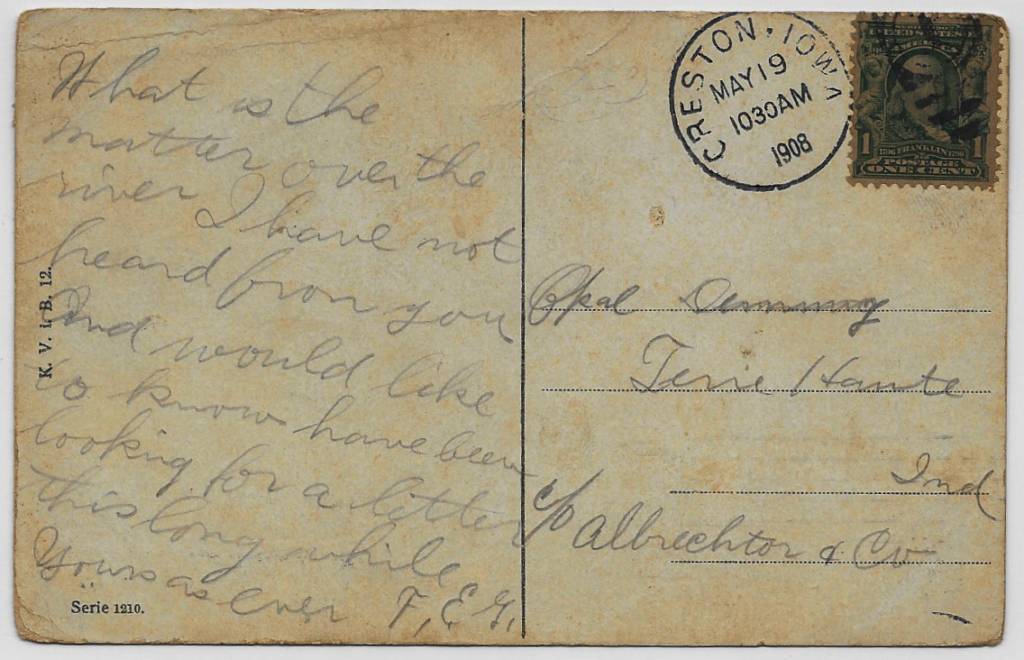 What is the
matter over the
river I have not
heard from you
And would like
to know have been
looking for a letter
this long while
Yours as ever F, E G.
K. V. i. B. 12.
Serie 1210.
CRESTON, IOWA
MAY 19
1030AM
1908
1 FRANKLIN 1
POSTAGE
ONE CENT
Opal Demmmg
Terre Haute
Ind
c/o Albrechtor & Co